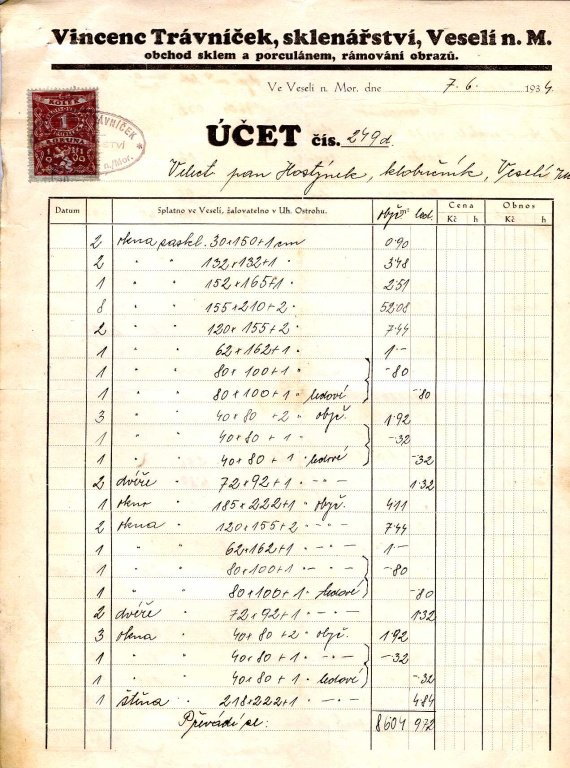 Vincenc Trávníček, sklenářství, Veselí n. M.
obchod sklem a porculánem, rámování obrazů.
Ve Veselí n. Mor. dne 7. 6. 1934
KOLEK
1
TRÁVNÍČEK
n./Mor.
ÚČET čís. 249d.
Velect pan Hostýnek, klobučník, Veselí
Datum Splatno ve Veselí, žalovatelno v Uh. Ostrohu. obyč. led. Cena Obnos
Kč h Kč h
2 okna zaskl. 30x150+1 cm 0·90
2 " " 132x132+1 " 3·48
1 " " 152x165+1 " 2·51
8 " " 155x210+2 " 52·08
2 " " 120x155+2 " 7·44
1 " " 62x162+1 " 1·—
1 " " 80x100+1 " —·80
1 " " 80x100+1 " ledové —·80
3 " " 40x80+2 " obyč. 1·92
1 " " 40x80+1 " —·32
1 " " 40x80+1 " ledové —·32
2 dvéře " 72x92+1 " — " — 1·32
1 okno " 185x222+1 " obyč. 4·11
2 okna " 120x155+2 " — " — 7·44
1 " " 62x162+1 " — " — 1·—
1 " " 80x100+1 " — " — —·80
1 " " 80x100+1 " ledové —·80
2 dvéře " 72x92+1 " — " — 1·32
3 okna " 40x80+2 " obyč. 1·92
1 " " 40x80+1 " — " — —·32
1 " " 40x80+1 " ledové —·32
1 stěna " 218x222+1 " — " — 4·84
Převádí se: 86·04 9·72